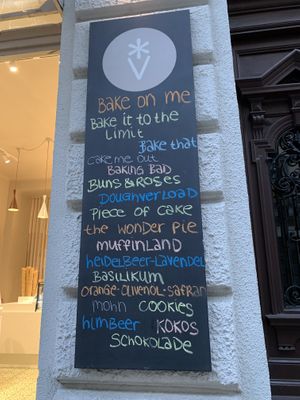 Bake on me
Bake it to the
Limit
Bake that
Cake me out
Baking Bad
Buns & Roses
Doughverload
Piece of Cake
the wonder pie
muffinland
heidelbeer-Lavendel
Basilikum
orange-olivenöl-safran
mohn cookies
himbeer Kokos
Schokolade